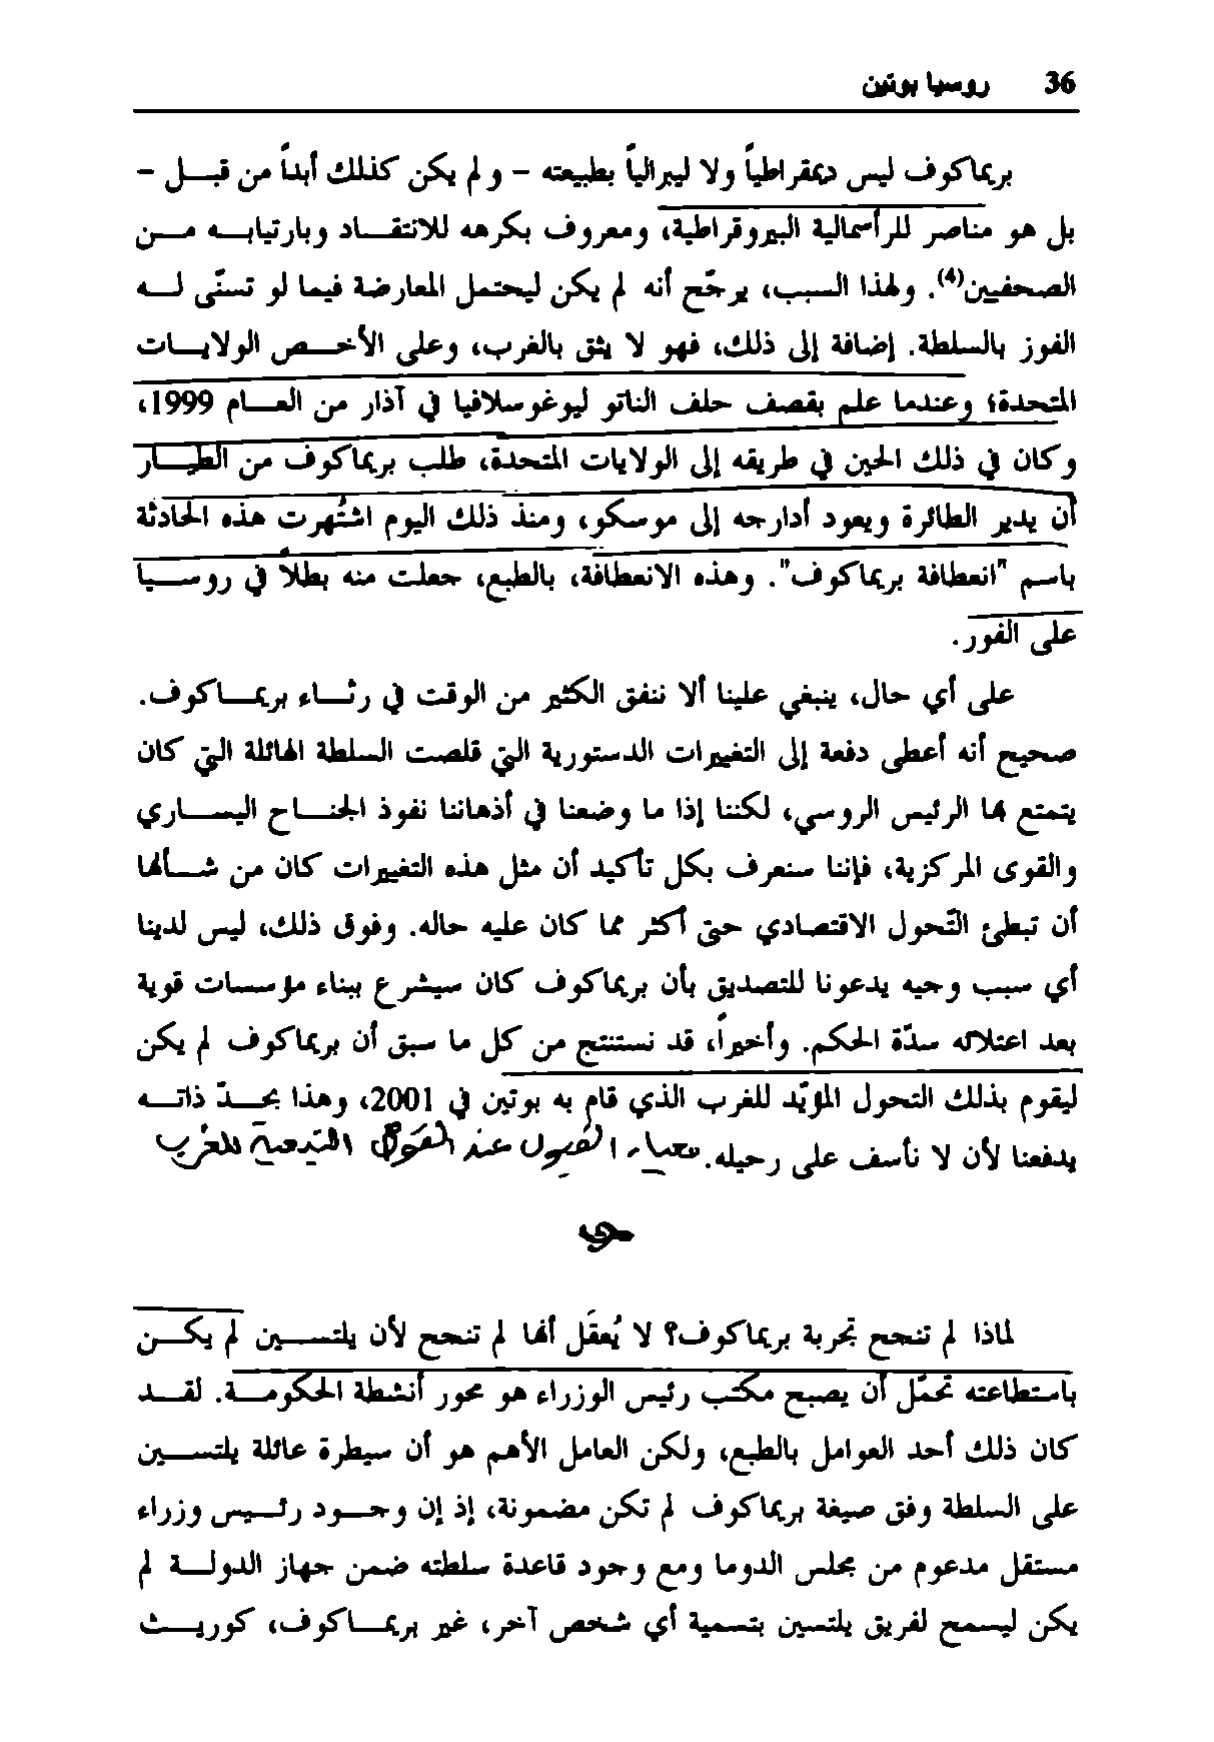 36 روسيا بوتين
بريماكوف ليس ديمقراطياً ولا ليبرالياً بطبيعته - و لم يكن كذلك أبداً من قبـــل -
بل هو مناصر للرأسمالية البيروقراطية، ومعروف بكرهه للانتقـــاد وبارتيابـــه مـــن
الصحفيين(4). ولهذا السبب، يرجّح أنه لم يكن ليحتمل المعارضة فيما لو تسنّى لـــه
الفوز بالسلطة. إضافة إلى ذلك، فهو لا يثق بالغرب، وعلى الأخـــص الولايـــات
المتحدة؛ وعندما علم بقصف حلف الناتو ليوغوسلافيا في آذار من العـــام 1999،
وكان في ذلك الحين في طريقه إلى الولايات المتحدة، طلب بريماكوف من الطيـــار
أن يدير الطائرة ويعود أدارجه إلى موسكو، ومنذ ذلك اليوم اشتُهرت هذه الحادثة
باسم "انعطافة بريماكوف". وهذه الانعطافة، بالطبع، جعلت منه بطلاً في روســـيا
على الفور.
على أي حال، ينبغي علينا ألا ننفق الكثير من الوقت في رثـــاء بريمـــاكوف.
صحيح أنه أعطى دفعة إلى التغييرات الدستورية التي قلصت السلطة الهائلة التي كان
يتمتع بها الرئيس الروسي، لكننا إذا ما وضعنا في أذهاننا نفوذ الجنـــاح اليســـاري
والقوى المركزية، فإننا سنعرف بكل تأكيد أن مثل هذه التغييرات كان من شـــأنها
أن تبطئ التّحول الاقتصادي حتى أكثر مما كان عليه حاله. وفوق ذلك، ليس لدينا
أي سبب وجيه يدعونا للتصديق بأن بريماكوف كان سيشرع ببناء مؤسسات قوية
بعد اعتلائه سدّة الحكم. وأخيراً، قد نستنتج من كل ما سبق أن بريماكوف لم يكن
ليقوم بذلك التحول المؤيّد للغرب الذي قام به بوتين في 2001، وهذا بحـــدّ ذاتـــه
يدفعنا لأن لا نأسف على رحيله. معيار القبول عند الغرب التبعية للغرب
لماذا لم تنجح تجربة بريماكوف؟ لا يُعقَل أنها لم تنجح لأن يلتســـين لم يكـــن
باستطاعته تحمّل أن يصبح مكتب رئيس الوزراء هو محور أنشطة الحكومـــة. لقـــد
كان ذلك أحد العوامل بالطبع، ولكن العامل الأهم هو أن سيطرة عائلة يلتســـين
على السلطة وفق صيغة بريماكوف لم تكن مضمونة، إذ إن وجـــود رئـــيس وزراء
مستقل مدعوم من مجلس الدوما ومع وجود قاعدة سلطته ضمن جهاز الدولـــة لم
يكن ليسمح لفريق يلتسين بتسمية أي شخص آخر، غير بريمـــاكوف، كوريـــث